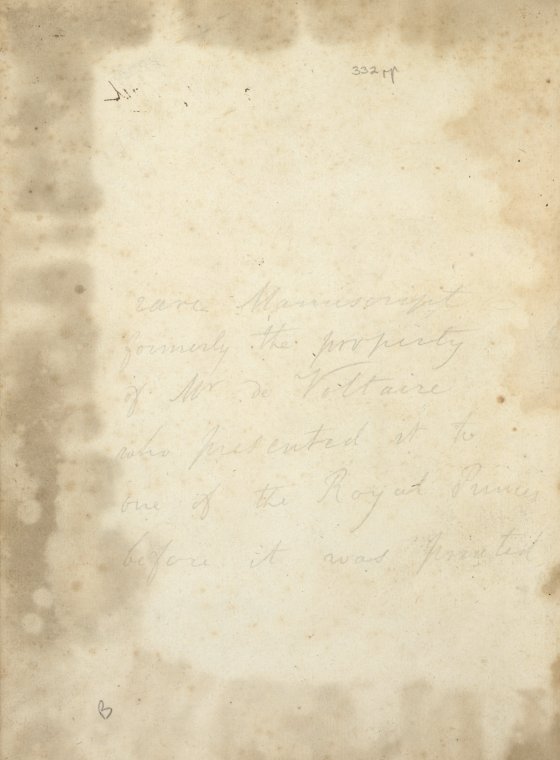 332
rare Manuscript
formerly the property
of Mr de Voltaire
who presented it to
one of the Royal Princes
before it was printed
B